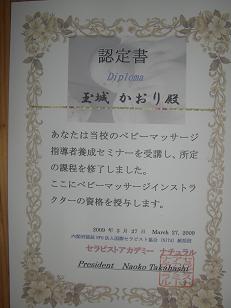 認定書
Diploma
玉城 かおり 殿
あなたは当校のベビーマッサージ
指導者養成セミナーを受講し、所定
の課程を修了しました。
ここにベビーマッサージインストラ
クターの資格を授与します。
2009 年 3 月 27 日 March 27, 2009
セラピストアカデミー ナチュラル
President Naoko Takahashi